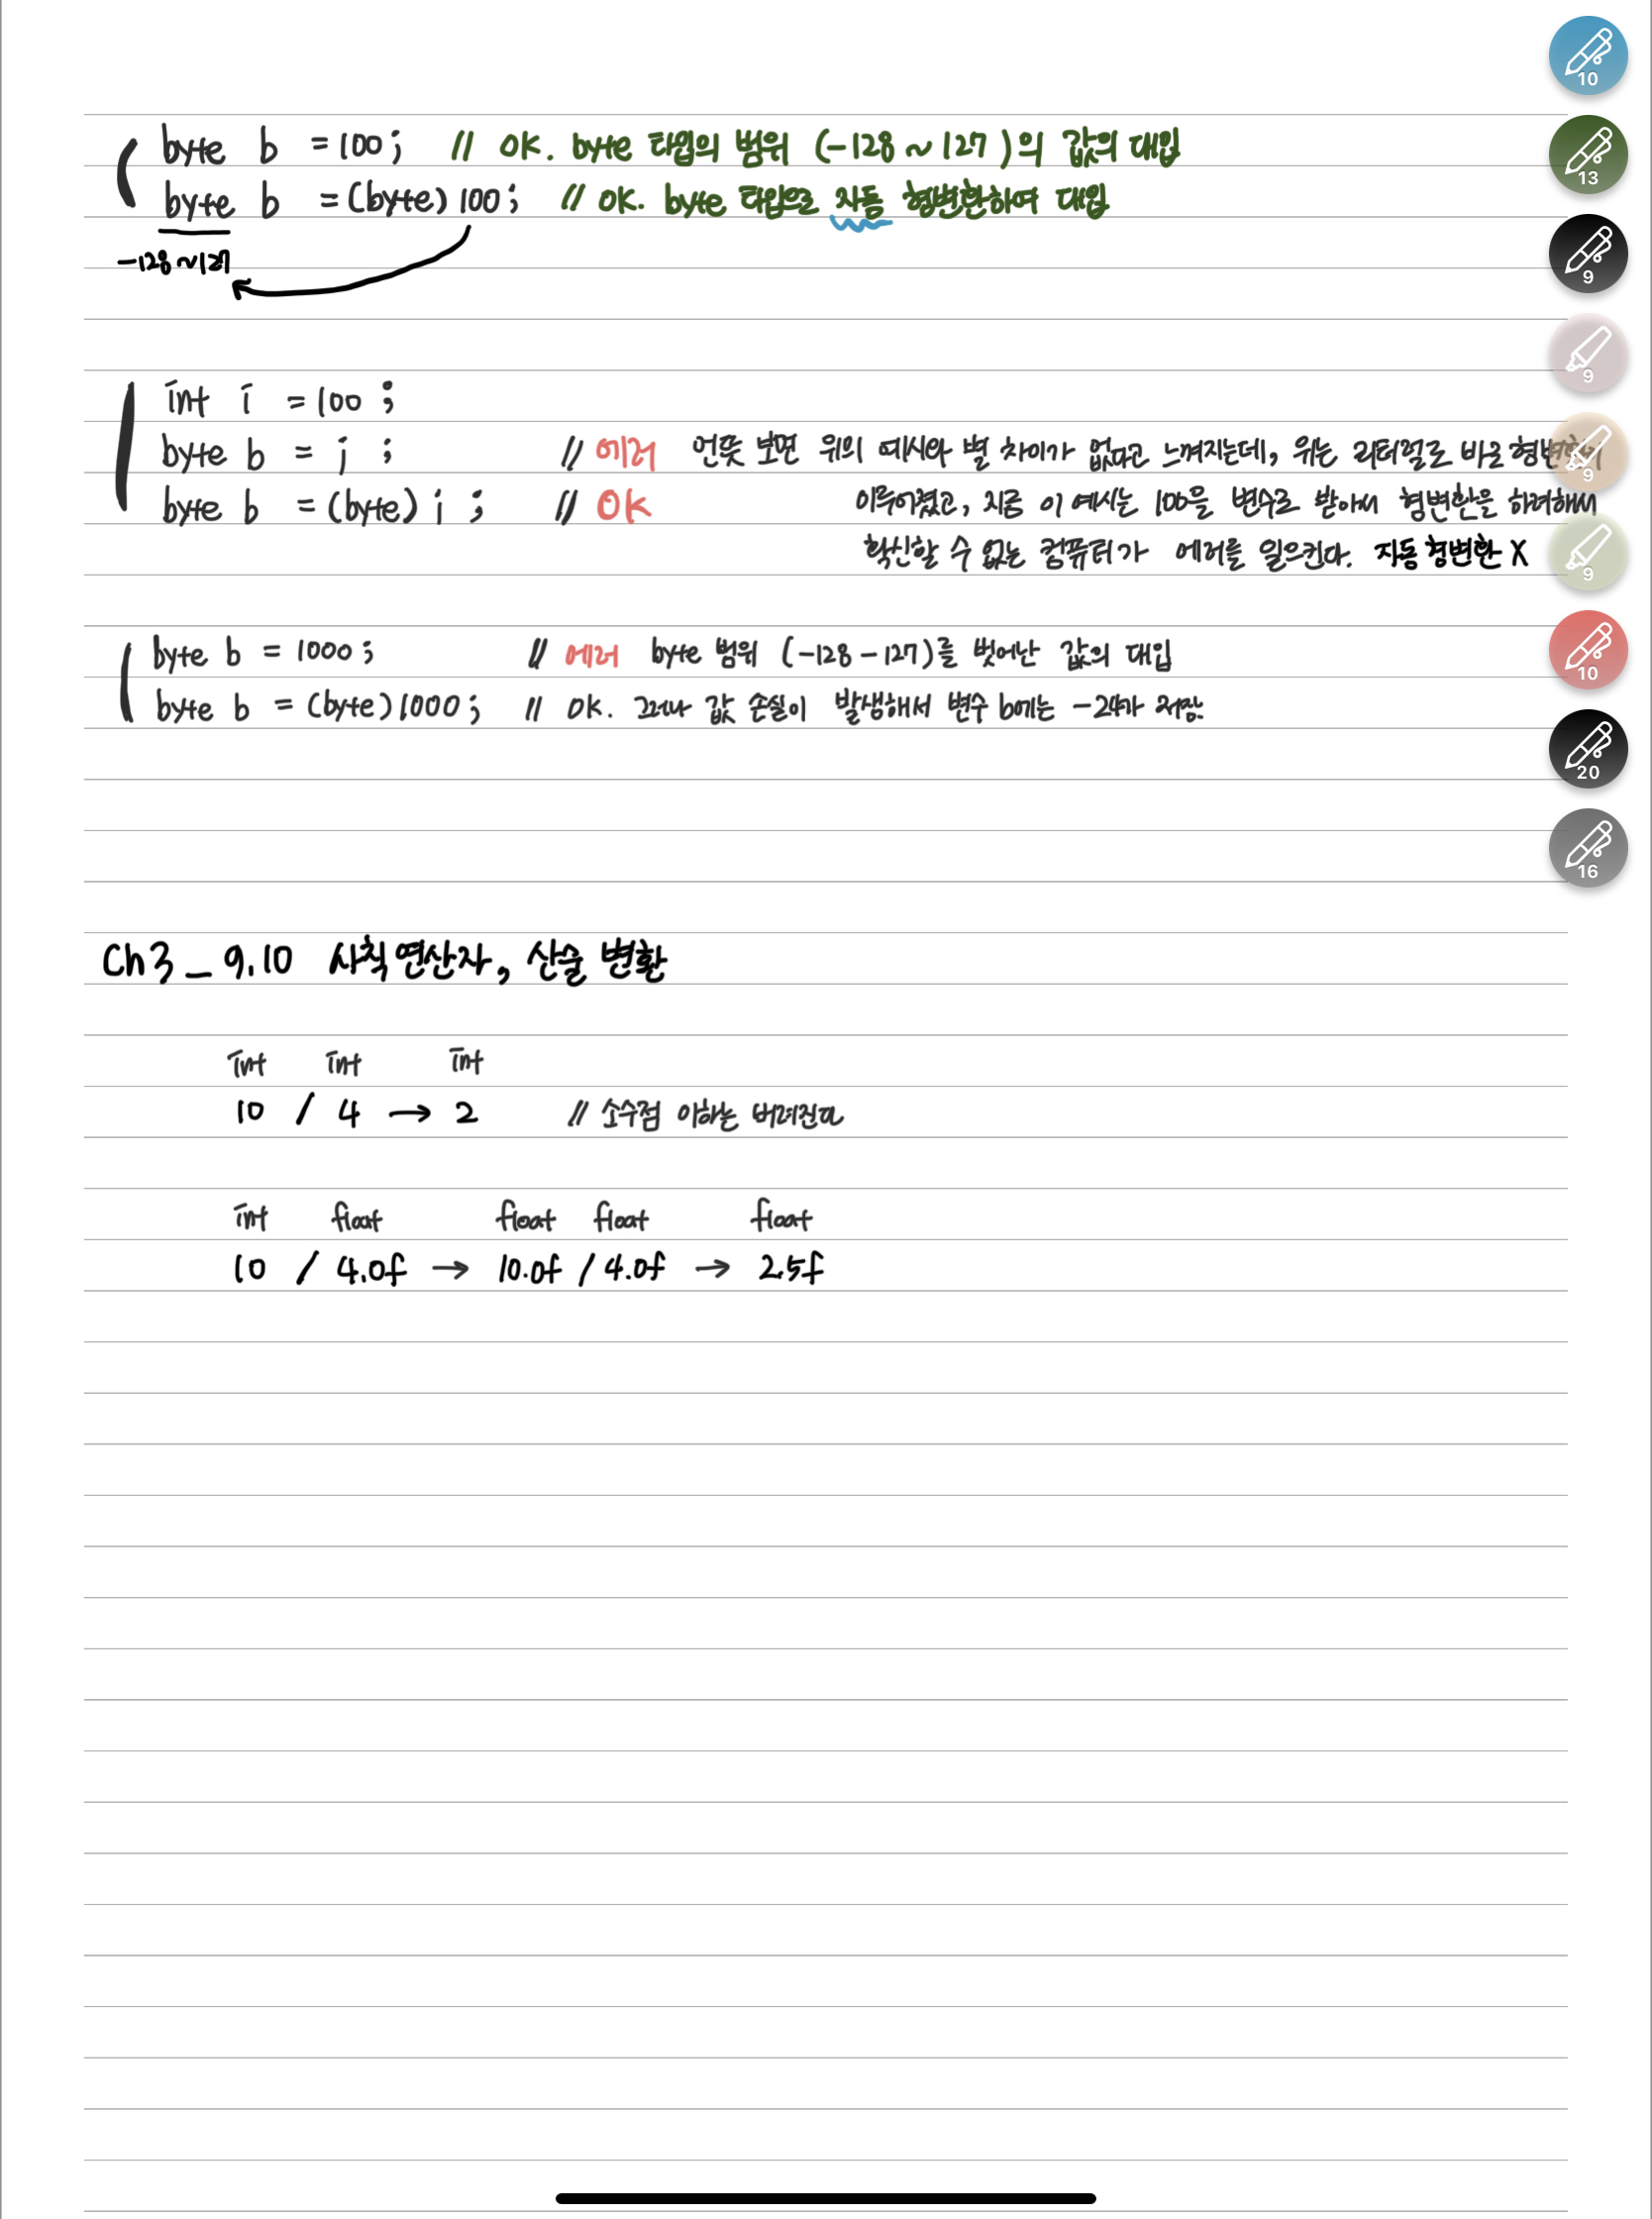 byte b = 100; // OK. byte 타입의 범위 (-128 ~ 127)의 값의 대입
byte b = (byte) 100; // OK. byte 타입으로 자동 형변환하여 대입
-128 ~ 127
int i = 100;
byte b = i; // 에러 언뜻 보면 위의 예시와 별 차이가 없다고 느껴지는데, 위는 리터럴로 바로
byte b = (byte) i; // OK 이루어졌고, 지금 이 예시는 100을 변수로 받아서 형변환을 하려해서
확신할 수 없는 컴퓨터가 에러를 일으킨다. 자동 형변환 X
byte b = 1000; // 에러 byte 범위 (-128 - 127)를 벗어난 값의 대입
byte b = (byte) 1000; // OK. 그러나 값 손실이 발생해서 변수 b에는 -24가 저장
Ch3_9.10 사칙 연산자, 산술 변환
int int int
10 / 4 → 2 // 소수점 이하는 버려진다
int float float float float
10 / 4.0f → 10.0f / 4.0f → 2.5f
10
13
9
9
9
9
10
20
16